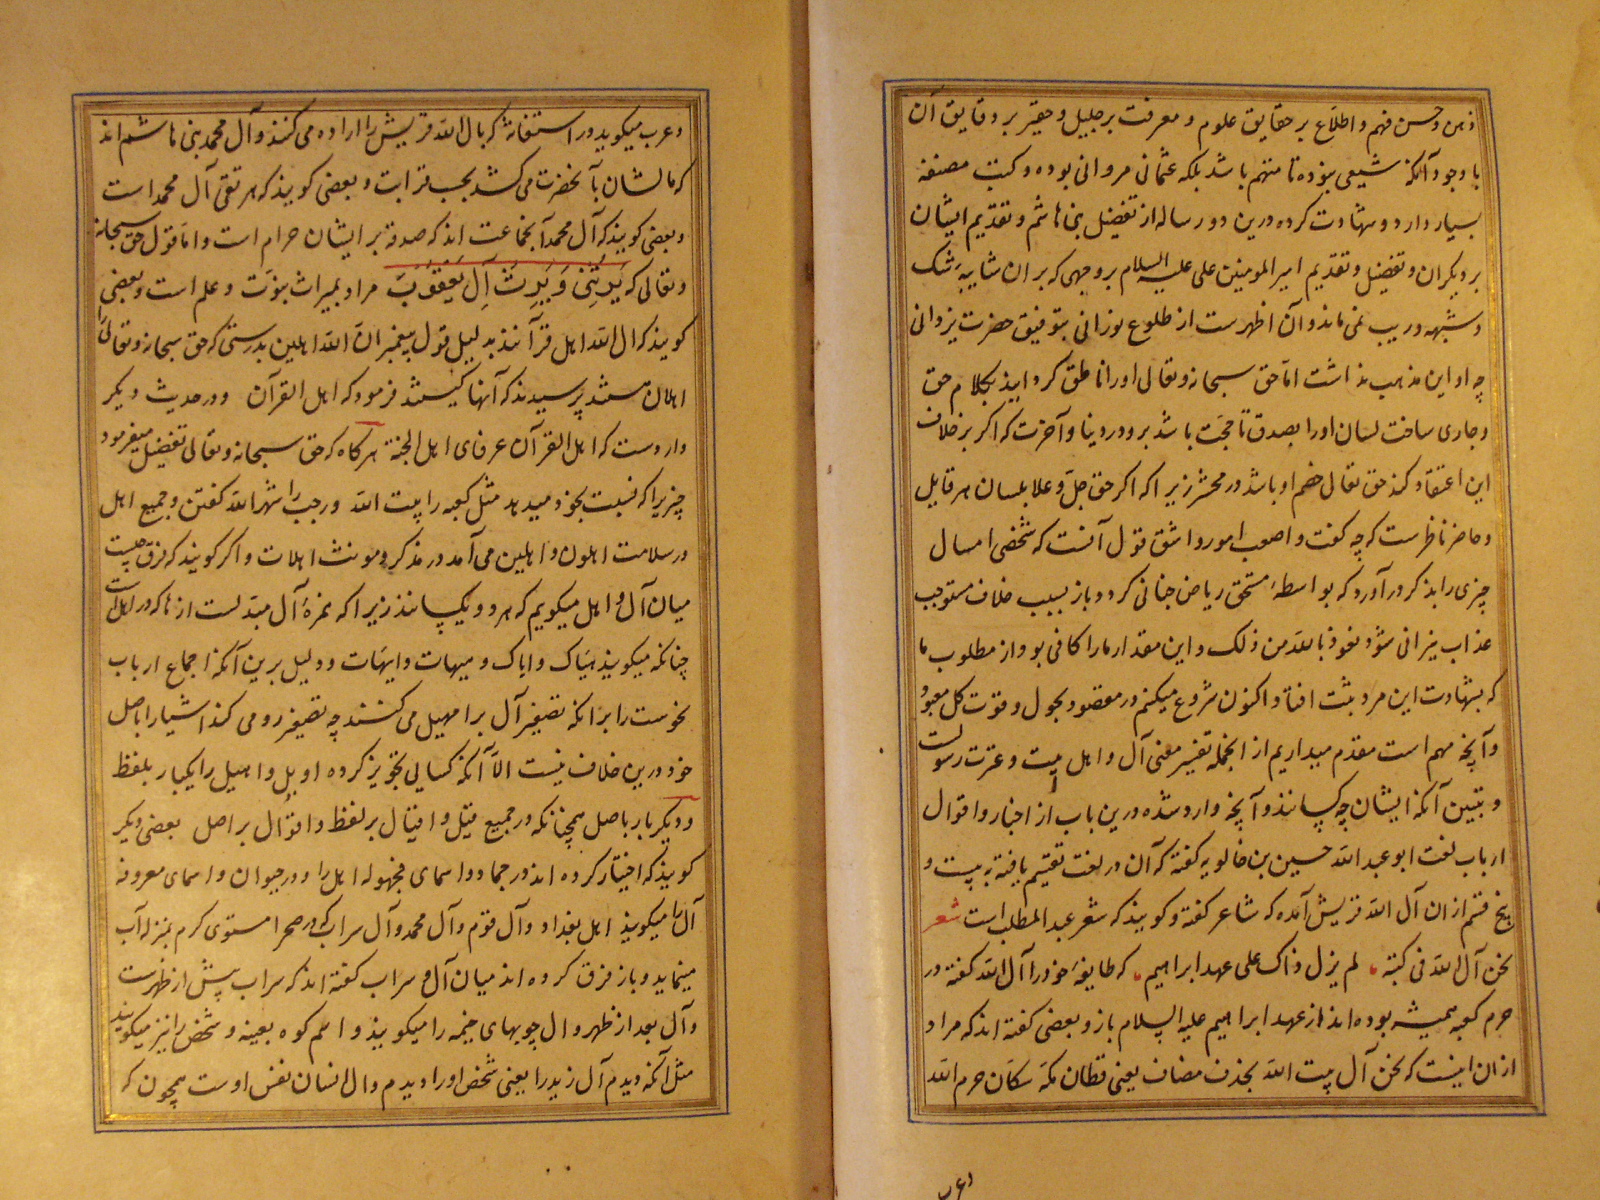 ذهن و حسن فهم و اطلاع بر حقایق علوم و معرفت بر جلیل و حقیر بر دقایق آن
با وجود آنکه شیعی نبوده تا متهم باشد بلکه عثمانی مروانی بوده و کتب مصنفه
بسیار دارد و شهادت کرده درین دو رساله از تفضیل بنی هاشم و تقدیم ایشان
بر دیگران و تفضیل و تقدیم امیر المومنین علی علیه السلام بر وجهی که بر ان شایبه شک
و شبهه و ریب نمی ماند و آن اظهرست از طلوع نورانی بتوفیق حضرت یزدانی
چه او این مذهب نداشت اما حق سبحانه و تعالی او را ناطق گردانید بکلام حق
و جاری ساخت لسان او را بصدق تا حجت باشد برو در دنیا و آخرت که اگر بر خلاف
این اعتقاد کند حق تعالی خصم او باشد در محشر زیرا که اگر حق جل و علا بلسان هر قایل
و حاضر ناظرست که چه گفت و اصعب امور و اشق قول آنست که شخصی امسال
چیزی را بذکر در آورد که بواسطهٔ مستحق ریاض جنانی گردد باز بسبب خلاف مستوجب
عذاب نیرانی شود نعوذ بالله من ذلک و این مقدار ما را کافی بود از مطلوب ما
که بشهادت این مرد ثبت افتاد اکنون شروع میکنم در مقصود بحول و قوت کل معبود
و آنچه مهم است مقدم میداریم از انجمله تفسیر معنی آل و اهل بیت و عترت رسولست
و تبیین آنکه ایشان چه کسانند و آنچه وارد شده درین باب از اخبار و اقوال
ارباب لغت ابو عبد الله حسین بن خالویه گفته که آن در لغت تقسیم یافته به بیست و
پنج قسم از ان آل الله قریش آمده که شاعر گفته و گویند که شعر عبد المطلب است شعر
نحن آل الله فی کعبته لم یزل ذاک علی عهد ابراهیم که طایفهٔ خود را آل الله گفته در
حرم کعبه همیشه بوده اند از عهد ابراهیم علیه السلام باز و بعضی گفته اند که مراد
از ان اینست که نحن آل بیت الله بحذف مضاف یعنی قطان مکه سکان حرم الله
وعرب
و عرب میگوید در استغاثه که یال الله قریش را اراده می کنند و آل محمد بنی هاشم اند
که مآلشان بآنحضرت می کشد بحسب قرابت و بعضی گویند که هر تقی آل محمد است
و بعضی گویند که آل محمد آنجماعت اند که صدقه بر ایشان حرام است و اما قول حق سبحانه
و تعالی که یَرِثُنِی وَ یَرِثُ آلِ یَعْقُوبَ مراد بمیراث نبوت و علم است و بعضی
گویند که ال الله اهل قرآنند بدلیل قول پیغمبر ان الله اهلین بدرستی که حق سبحانه و تعالی را
اهلان هستند پرسیدند که آنها کیستند فرمود که اهل القرآن و در حدیث دیگر
واردست که اهل القرآن عرفای اهل الجنة هر گاه که حق سبحانه و تعالی تفضیل میفرمود
چیزی را که نسبت بخود میدهد مثل کعبه را بیت الله و رجب را شهر الله گفتن و جمیع اهل
در سلامت اهلون و اهلین می آمد در مذکر و مونث اهلات و اگر گویند که فرق چیست
میان آل و اهل میگویم که هر دو یکسانند زیرا که همزهٔ آل مبدلست از ها که در اهل است
چنانکه میگویند هیاک و ایاک و هیهات و ایهات و دلیل برین آنکه اجماع ارباب
نحوست را بر انکه تصغیر آل برا مهیل می کنند چه تصغیر رد می کند اشیا را باصل
خود درین خلاف نیست الا آنکه کسائی تجویز کرده اویل و اهیل را یکبار بلفظ
و دیگر بار باصل همچنانکه در جمیع قیل و اقیال بر لفظ و اقوال بر اصل بعضی دیگر
گویند که اختیار کرده اند در جماد و اسمای مجهوله اهل را و در حیوان و اسمای معروفه
آل را میگویند اهل بغداد و آل قوم و آل محمد و آل سراب که در صحرا مستوی گرم بمنزله آب
مینماید و باز فرق کرده اند میان آل و سراب گفته اند که سراب پیش از ظهرست
و آل بعد از ظهر و ال چوبهای خیمه را میگویند و اسم کوه بعینه و شخص را نیز میگویند
مثل آنکه دیدم آل زید را یعنی شخص او را دیدم و ال انسان نفس اوست همچون که